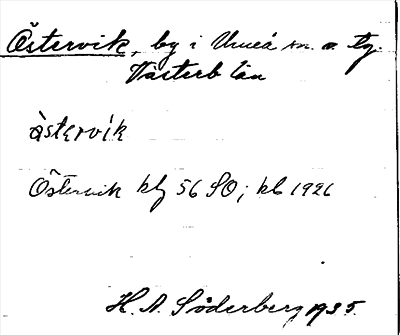 Östervik, by i Umeå sn. o. tg.
Västerb län
åstərvik
Östervik kbl 56 SO; kb 1926
H. A. Söderberg 1935.